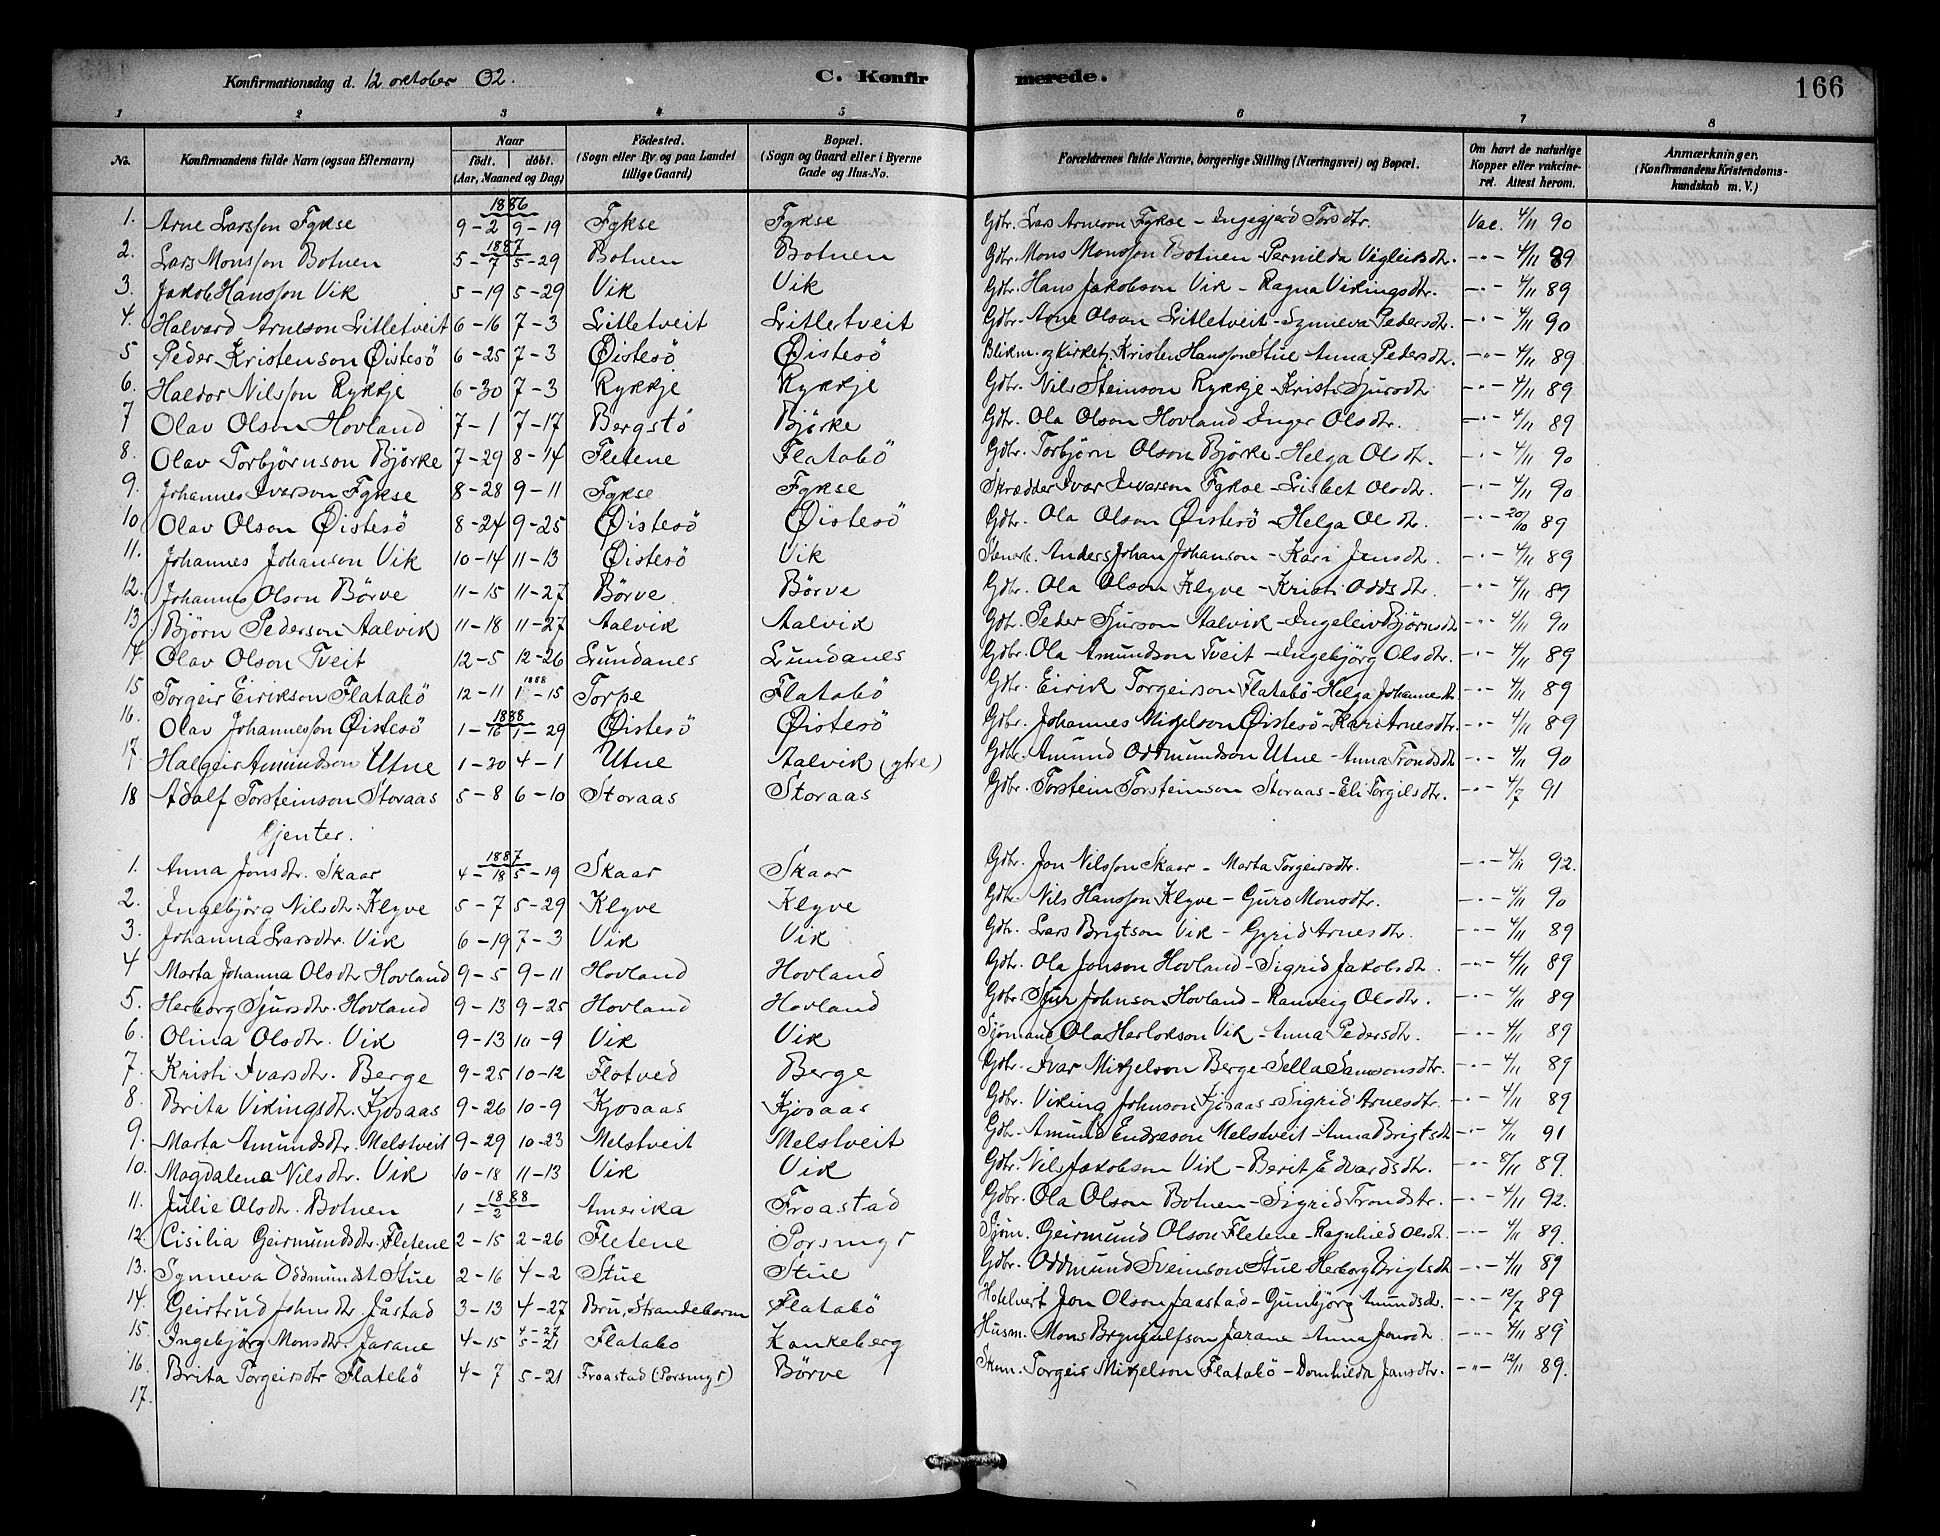 Konfirmationsdag d. 12 oktober 02. C. Konfirmerede. 166
1 2 3 4 5 6 7 8
No. Konfirmandens fulde Navn (ogsaa Efternavn) Naar födt. döbt. (Aar, Maaned og Dag) Födested. (Sogn eller By og paa Landet tillige Gaard) Bopæl. (Sogn og Gaard eller i Byerne Gade og Hus-No. Forældrenes fulde Navne, borgerlige Stilling (Næringsvei) og Bopæl. Om havt de naturlige Kopper eller vakcineret. Attest herom. Anmærkninger. (Konfirmandens Kristendomskundskab m. V.)
1886
1. Arne Larsson Fykse 9-2 9-19 Fykse Fykse Gdbr. Lars Arneson Fykse - Ingegjerd Torsdtr. Vac. 4/11 90
1887
2. Lars Monsson Botnen 5-7 5-29 Botnen Botnen Gdbr. Mons Monsson Botnen - Pernilda Vigleiksdtr. -"- 4/11 89
3. Jakob Hansson Vik 5-19 5-29 Vik Vik Gdbr. Hans Jakobson Vik - Ragna Vikingsdtr. -"- 4/11 89
4. Halvard Arneson Litletveit 6-16 7-3 Litletveit Litletveit Gdbr. Arne Olson Litletveit - Synneva Pedersdtr. -"- 4/11 90
5 Peder Kristenson Öistesö 6-25 7-3 Öistesö Öistesö Blikm. og Kirketj. Kristen Hansson Stue - Anna Pedersdtr. -"- 4/11 89
6. Haldor Nilsson Rykkje 6-30 7-3 Rykkje Rykkje Gdbr. Nils Steinson Rykkje - Kristi Sjursdtr. -"- 4/11 89
7 Olav Olson Hovland 7-1 7-17 Bergstö Björke Gdbr. Ola Olson Hovland Inger Olsdtr. -"- 4/11 89
8. Olav Torbjörnson Björke 7-29 8-14 Fletene Flatabö Gdbr. Torbjörn Olson Björke - Helga Olsdtr. -"- 4/11 90
9. Johannes Ivarson Fykse 8-28 9-11 Fykse Fykse Skrædder Ivar Ivarson Fykse - Lisbet Olsdtr. -"- 4/11 90
10 Olav Olson Öistesö 8-24 9-25 Öistesö Öistesö Gdbr. Ola Olson Öistesö - Helga Olsdtr. -"- 20/10 89
11. Johannes Johanson Vik 10-14 11-13 Öistesö Vik Stenarb. Anders Johan Johanson - Kari Jensdtr. -"- 4/11 89
12. Johannes Olson Börve 11-15 11-27 Börve Börve Gdbr. Ola Olson Klyve - Kristi Oddsdtr. -"- 4/11 89
13 Björn Pederson Aalvik 11-18 11-27 Aalvik Aalvik Gdbr. Peder Sjurson Aalvik - Ingeleiv Björnsdtr -"- 4/11 90
14 Olav Olson Tveit 12-5 12-26 Lundanes Lundanes Gdbr. Ola Amundson Tveit - Ingebjörg Olsdtr. -"- 4/11 89
15 Torgeir Eirikson Flatabö 12-11 1888 1-15 Torpe Flatabö Gdbr. Eirik Torgeirson Flatabö - Helga Johannesdtr -"- 4/11 89
1888
16. Olav Johannesson Öistesö 1-16 1-29 Öistesö Öistesö Gdbr. Johannes Mikkelson Öistesö - Kari Arnesdtr. -"- 4/11 89
17. Halgeir Amundson Utne 1-30 4-1 Utne Aalvik (ytre) Gdbr. Amund Oddmundson Utne - Anna Trondsdtr -"- 4/11 90
18 Adolf Torsteinson Storaas 5-8 6-10 Storaas Storaas Gdbr. Torstein Torsteinson Storaas - Eli Torgilsdtr. -"- 4/7 91
Gjenter.
1887
1. Anna Jonsdtr. Skaar 4-18 5-19 Skaar Skaar Gdbr. Jon Nilsson Skaar - Marta Torgeirsdtr. -"- 4/11 92.
2. Ingebjörg Nilsdtr. Klyve 5-7 5-29 Klyve Klyve Gdbr. Nils Hansson Klyve - Guro Monsdtr. -"- 4/11 90
3. Johanna Larsdtr. Vik 6-19 7-3 Vik Vik Gdbr. Lars Brigtson Vik - Gyrid Arnesdtr. -"- 4/11 89
4 Marta Johanna Olsdtr Hovland 9-5 9-11 Hovland Hovland Gdbr. Ola Jonson Hovland - Sigrid Jakobsdtr. -"- 4/11 89
5. Herborg Sjursdtr. Hovland 9-13 9-25 Hovland Hovland Gdbr. Sjur Johnson Hovland - Ranveig Olsdtr. -"- 4/11 89
6. Olina Olsdtr. Vik 9-13 10-9 Vik Vik Sjömand Ola Herlokson Vik - Anna Pedersdtr. -"- 4/11 89
7. Kristi Ivarsdtr. Berge 9-25 10-12 Flotved Berge Gdbr. Ivar Mikkelson Berge - Sella Samsonsdtr. -"- 4/11 89
8. Brita Vikingsdtr. Kjosaas 9-26 10-9 Kjosaas Kjosaas Gdbr. Viking Johnson Kjosaas - Sigrid Arnesdtr. -"- 4/11 89
9. Marta Amundsdtr. Melstveit 9-29 10-23 Melstveit Melstveit Gdbr. Amund Endreson Melstveit - Anna Brigtsdtr -"- 4/11 91
10. Magdalena Nilsdtr. Vik 10-18 11-13 Vik Vik Gdbr. Nils Jakobson Vik - Berit Edvardsdtr. -"- 8/11 89.
1888
11. Julie Olsdtr. Botnen 1-2 Amerika Froastad Gdbr. Ola Olson Botnen - Sigrid Trondsdtr. -"- 4/11 92.
12. Cisilia Geirmundsdtr. Fletene 2-15 2-26 Fletene Porsmyr Sjöm. Geirmund Olson Fletene - Ragnhild Olsdtr. -"- 4/11 89.
13. Synneva Oddmundsdt. Stue 2-16 4-2 Stue Stue Gdbr. Oddmund Sveinson Stue Herborg Brigtsdtr -"- 4/11 89
14. Geirtrud Johnsdtr. Jåstad 3-13 4-27 Bru, Strandebarm Flatabö Hotelvert Jon Olson Jaastad - Gunbjörg Amundsdtr. -"- 12/7 89
15. Ingebjörg Monsdtr. Jarane 4-15 4-27 5-21 Flatabö Kankeberg Husm. Mons Brynjulfson Jarane - Anna Jonsdtr. -"- 4/11 89
16. Brita Torgeirsdtr Flatebö 4-7 5-21 Froastad (Porsmyr) Börve Torgeir Mikkelson Flatabö - Domhilda Jansdtr. -"- 12/11 89.
17.